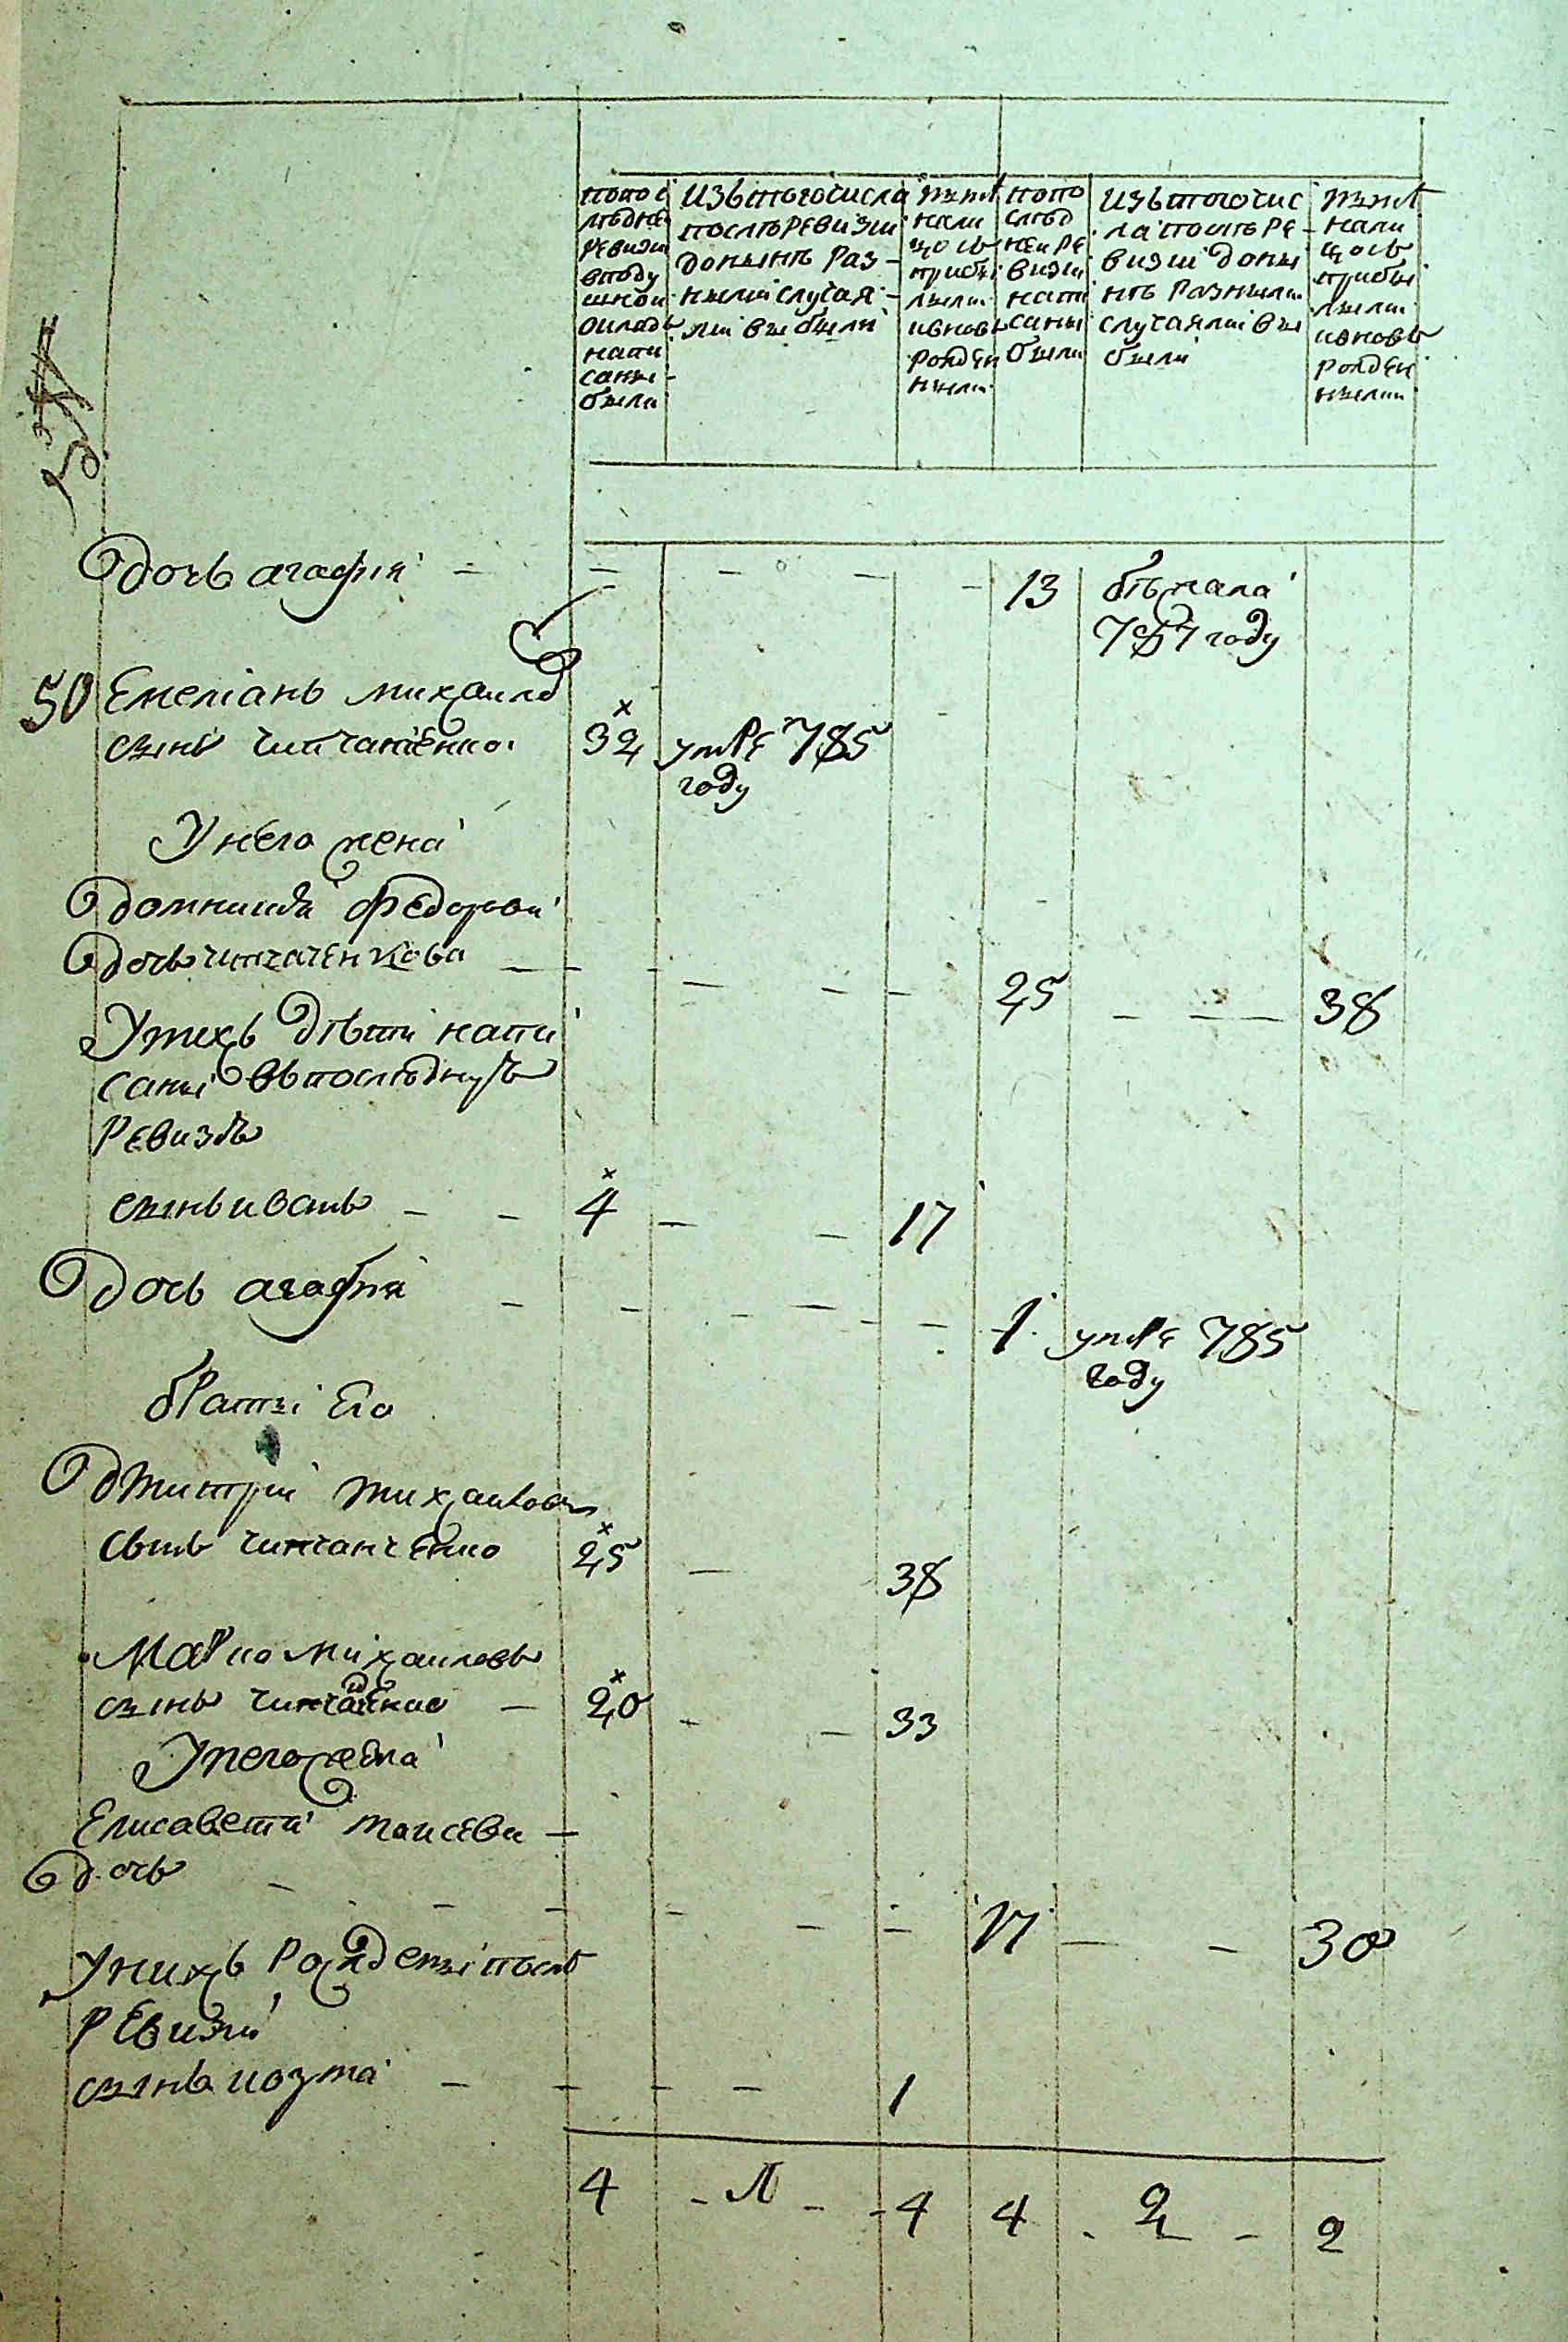 попос
лѣдней
ревизи
вподу
шной
окладъ
напи
саны
были
Изътогочисла
послѣревизии
донынѣ раз-
ными случая-
ми выбыли
нынѣ
нали
цось
прибы
лыми
ивновь
рожден
ными
попо
слѣд
ней ре
визи
напи
саны
были
Изътогочис
лапослѣре-
визии доны
нѣ разными
случаями вы
были
нынѣ
нали
цось
прибы
лыми
ивновь
рожден
ными
дочь агафия - - - - - 13 бѣжала
787 году
50 Емелианъ михаило
сынъ 32 умре 785
году
Унего жена
домникия федорова
дочь - - - - - 25 - - - 38
Унихъ дѣти напи
саны въпослѣднуъ
ревизъ
сынъ иванъ - - 4 - - 17
дочь агафия - - - - - - 1 умре 785
году
братья его
дмитрий михаиловъ
сынъ 25 - 38
Марко михаиловъ
сынъ - 20 - - 33
Унего жена
Елисавета моисева -
дочь - - - - - - 17 - - 30
Унихъ рождены послѣ
ревизии
сынъ козма - - - - 1
4 - 1 - - 4 4 - 2 - 2